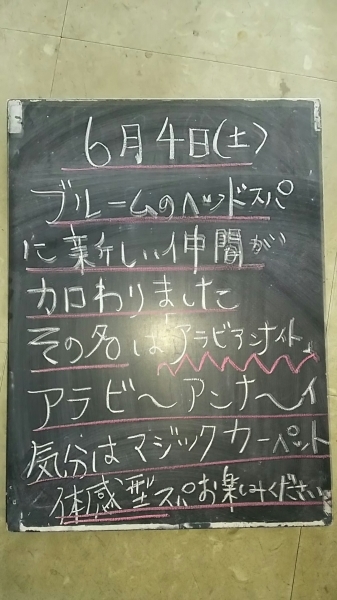 6月4日(土)
ブルームのヘッドスパ
に新しい仲間が
加わりました
その名は「アラビアンナイト」
アラビ〜アンナ〜イ
気分はマジックカーペット
体感型スパお楽しみください